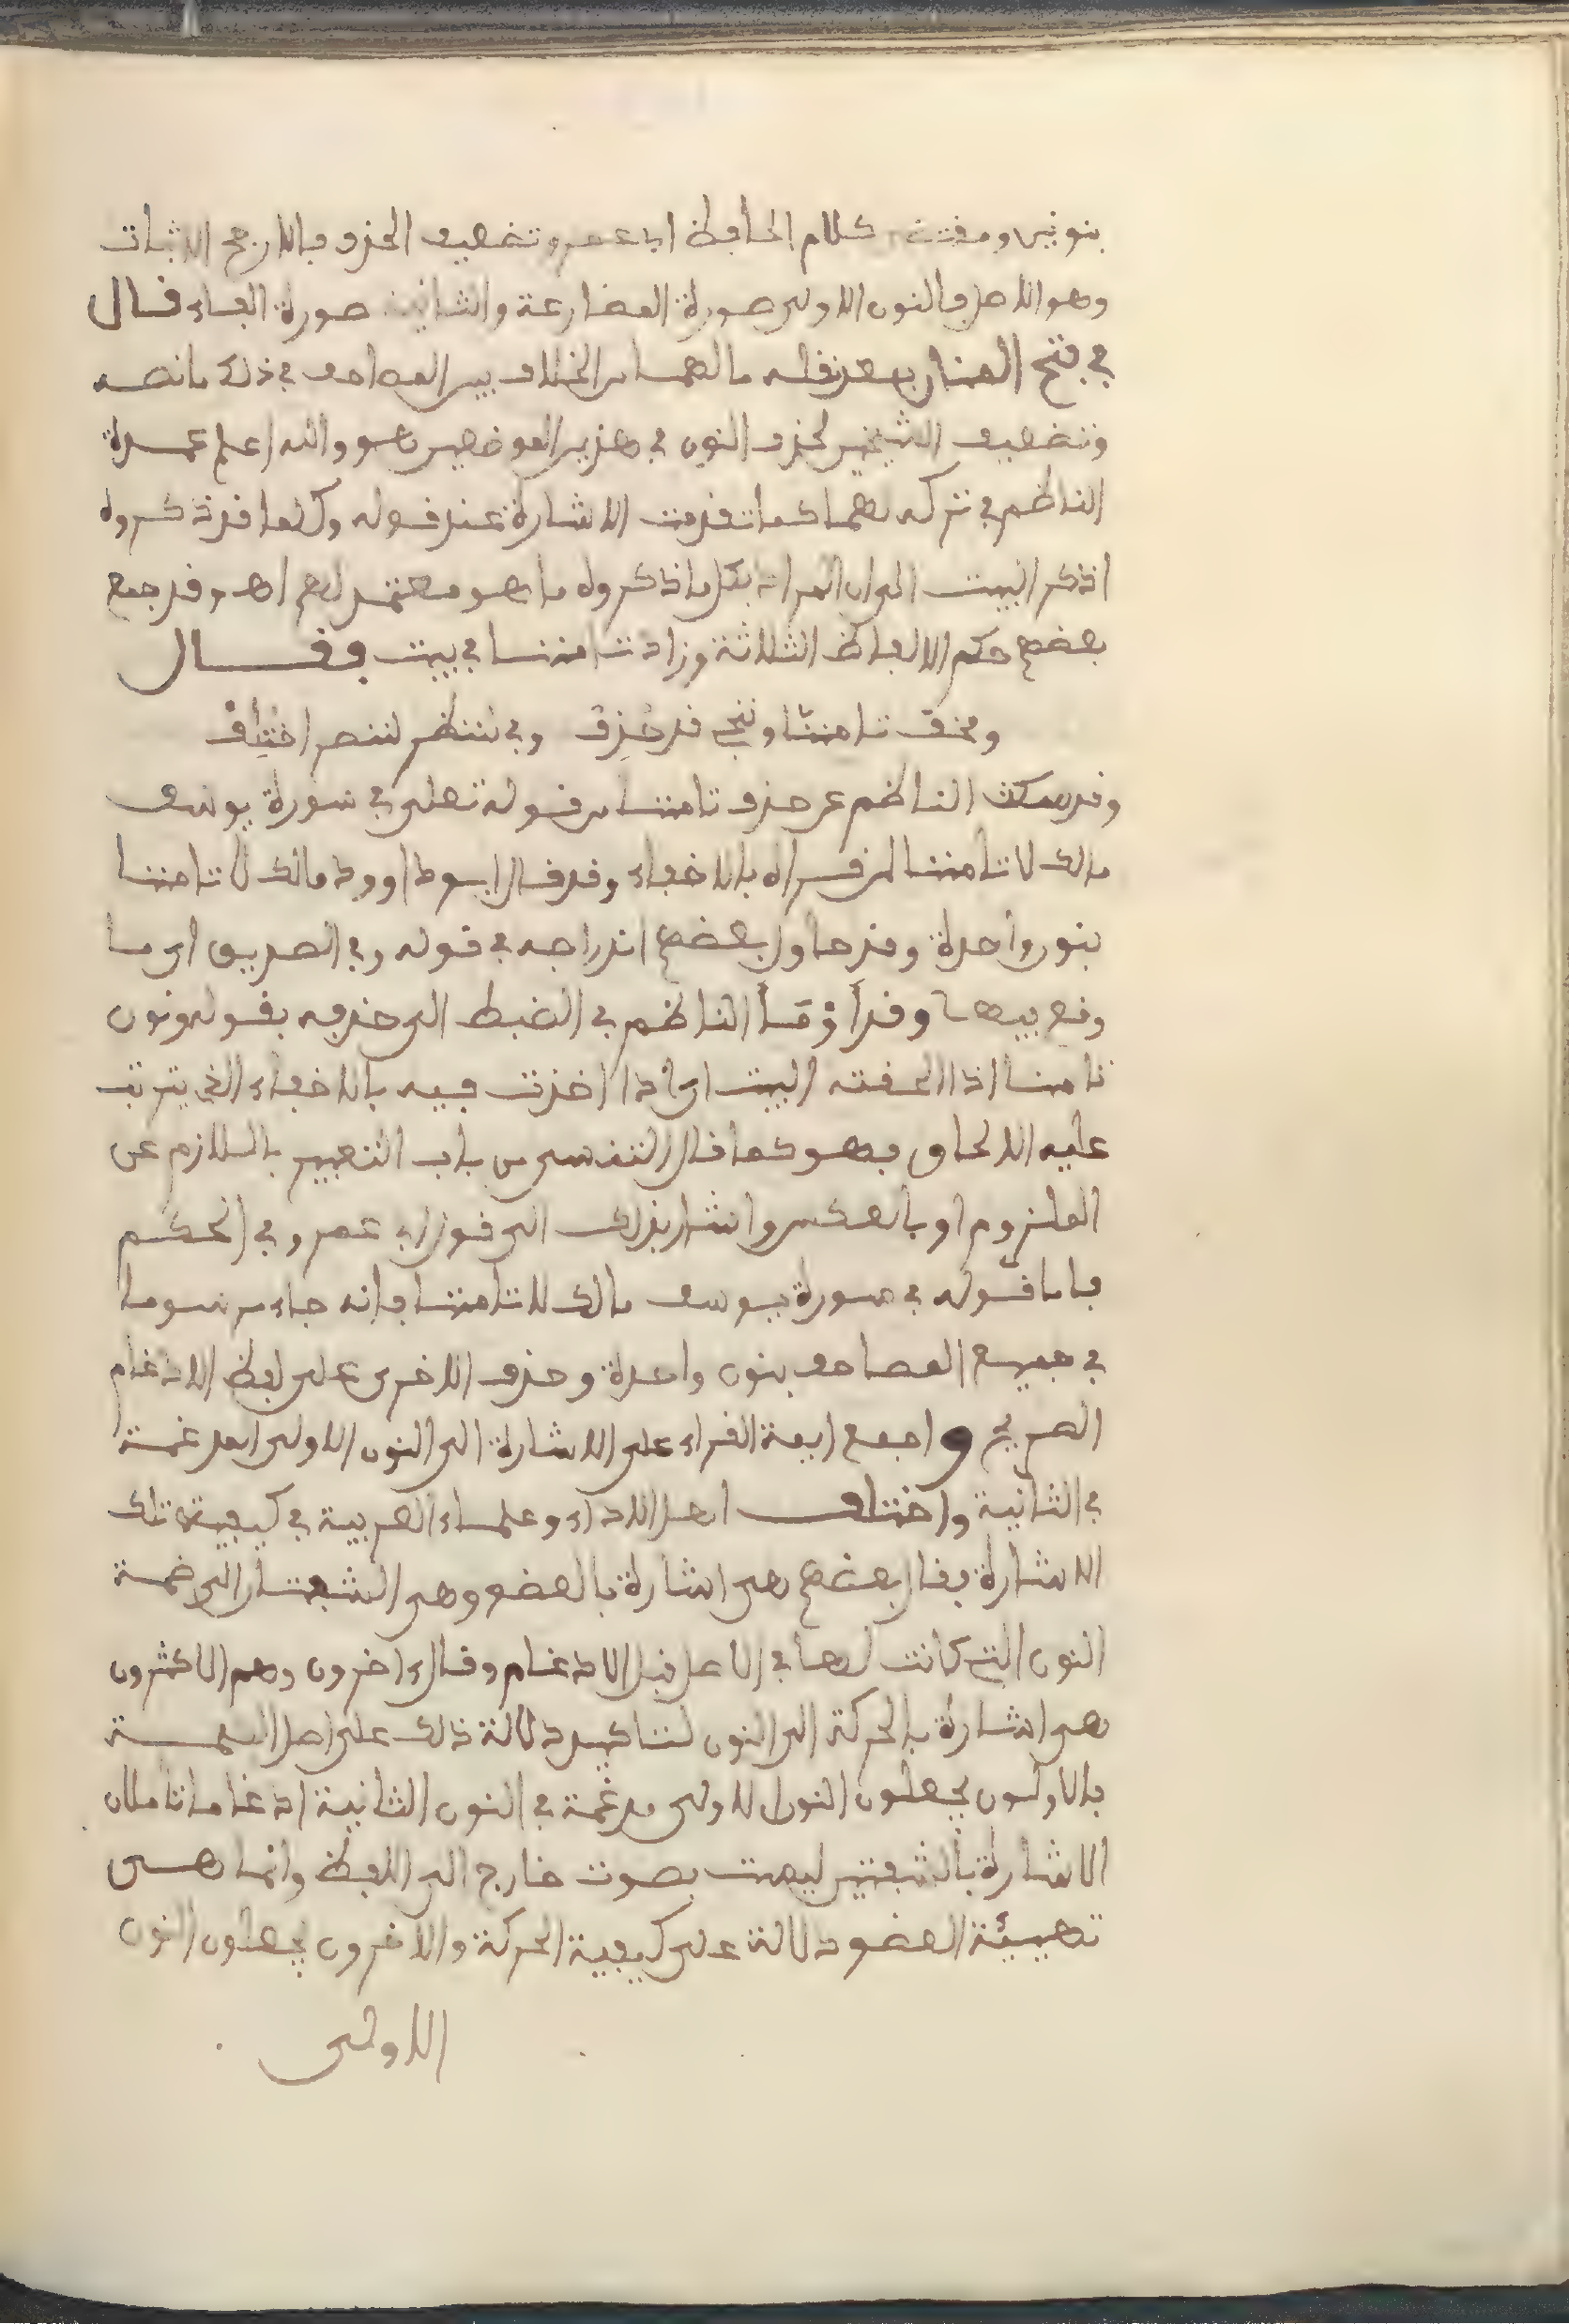 بنونين ومقتضى كلام الحافظ ابي عمرو تضعيف الحذف فالارجح الاثبات
وهو الاصل فالنون الاولى صورة المضارعة والثانية صورة الفاء قال
في فتح المنان بعد نقله ما لهما من الخلاف بين المصاحف في ذلك ما نصه
وتضعيف الشيخين لحذف النون في هذين الموضعين هو والله اعلم عمدة
الناظم في تركه لهما كما تقدمت الاشارة عند قوله وكلما قد ذكروه
اذكر البيت الى ان المراد بكل ما ذكروه ما هو معتمد لهم اهـ وقد جمع
بعضهم حكم الالفاظ الثلاثة وزاد تامننا في بيت فقال
ومخف تامنّا وننجي قد حُذِفْ وفي لننظر لننصر اختُلِفْ
وقد سكت الناظم عن حذف تامننا من قوله تعلى في سورة يوسف
مالك لا تأمننا لمن قراه بالاخفاء وقد قال ابو داوود مالك لا تامننا
بنون واحدة وقد حاول بعضهم اندراجه في قوله وفي الصديق اي ما
وقع بيها وقد أوْمَأَ الناظم في الضبط الى حذفه بقوله ونون
تامنا اذا الحقته البيت اي اذا اخذت فيه بالاخفاء الذي يترتب
عليه الالحاق فهو كما قال التنسي من باب التعبير باللازم عن
الملزوم او بالعكس واشار بذلك الى قول ابي عمرو في المحكم
فاما قوله في سورة يوسف مالك لا تامننا فإنه جاء مرسوما
في جميع المصاحف بنون واحدة وحذف الاخرى على لفظ الادغام
الصريح واجمع ايمة القراء على الاشارة الى النون الاولى المدغمة
في الثانية واختلف اهل الاداء وعلماء العربية في كيفية تلك
الاشارة فقال بعضهم هي اشارة بالعضو وهي الشفتان الى ضمة
النون التي كانت لها في الاصل قبل الادغام وقال ءاخرون وهم الاكثرون
هي اشارة بالحركة الى النون لتاكيد دلالة ذلك على اصل الكلمة
فالاولون يجعلون النون الاولى مدغمة في النون الثانية ادغاما تاما لان
الاشارة بالشفتين ليست بصوت خارج الى اللفظ وانما هي
تهيئة العضو دلالة على كيفية الحركة والاخرون يجعلون النون
الاولى